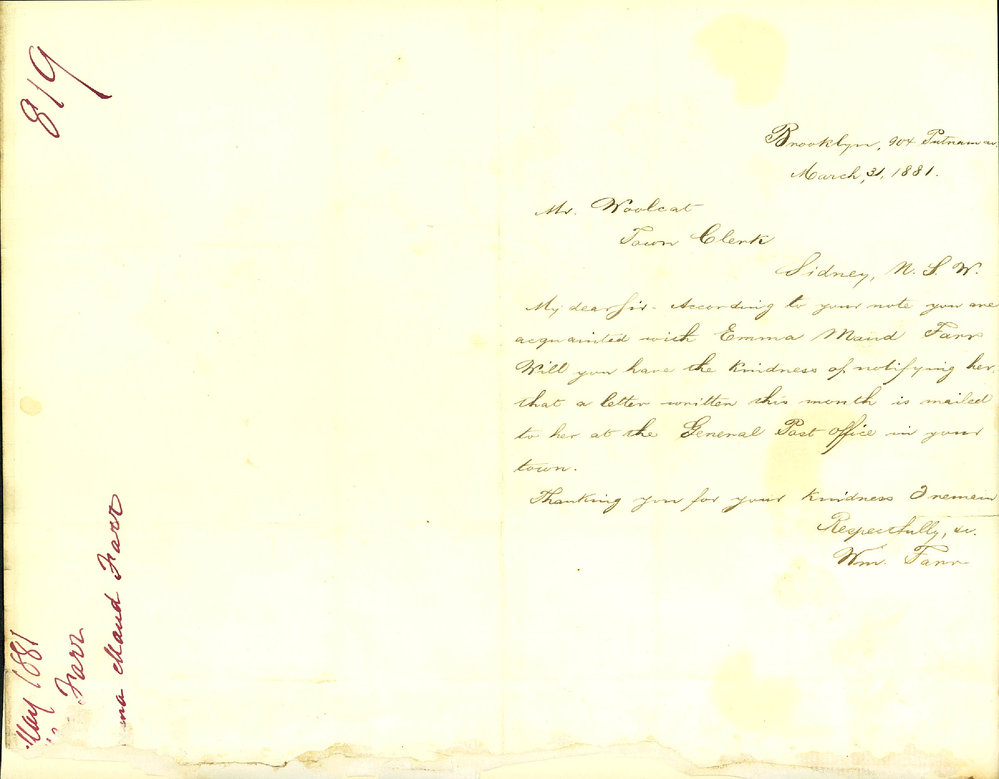 819
May 1881
Farr
ma Maud Farr
Brooklyn, 904 Putnam av.
March, 31, 1881.
Mr. Woolcat
Town Clerk
Sidney, N. S. W.
My dear Sir. According to your note you are
acquainted with Emma Maud Farr
Will you have the kindness of notifying her
that a letter written this month is mailed
to her at the General Post office in your
town.
Thanking you for your kindness I remain
Respectfully, &c.
Wm. Farr